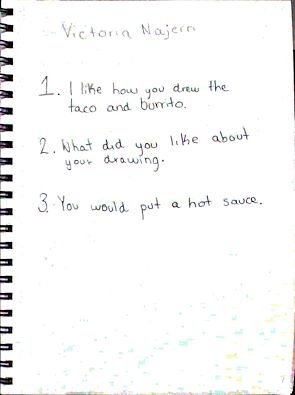 Victoria Najera
1. I like how you drew the
taco and burrito.
2. What did you like about
your drawing.
3. You would put a hot sauce.